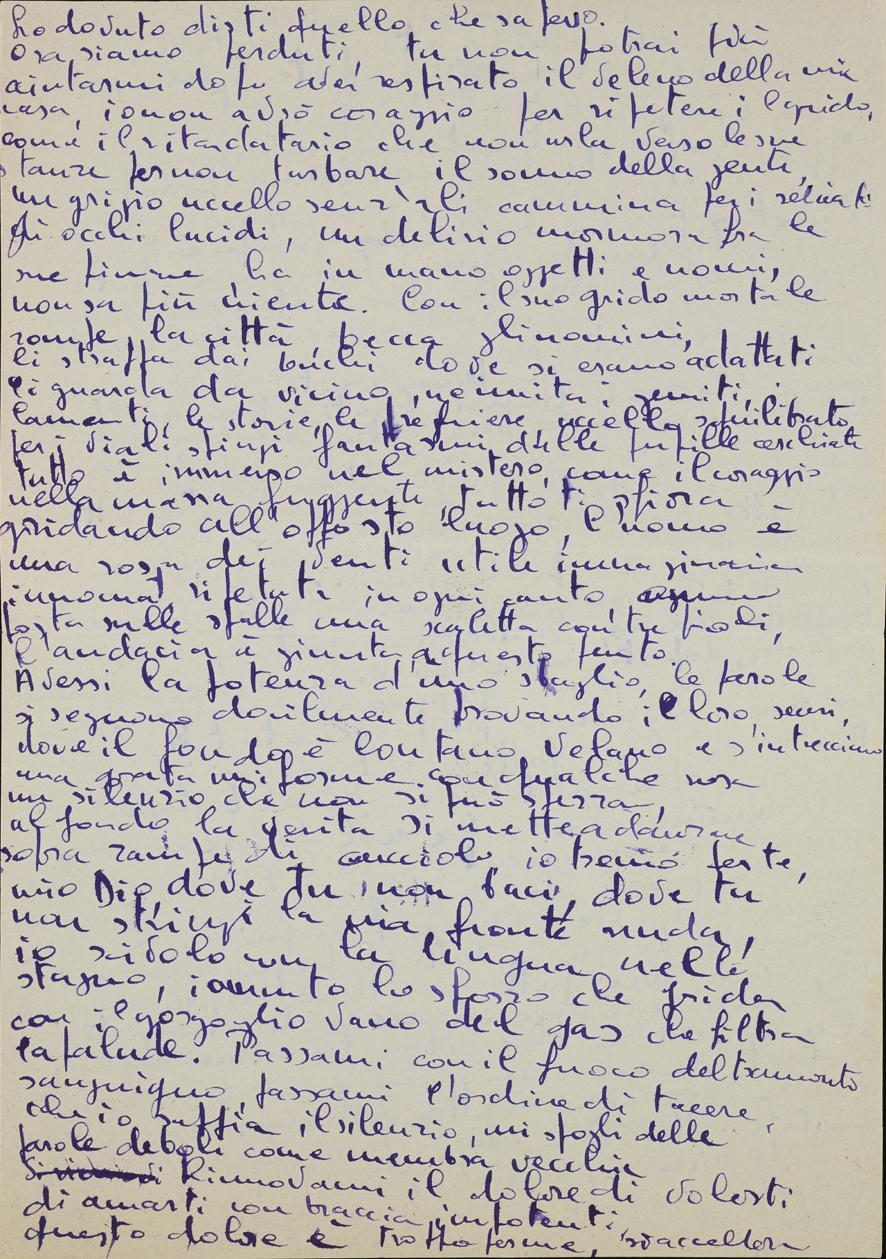 ho dovuto dirti quello che sapevo.
Ora siamo perduti, tu non potrai più
aiutarmi dopo aver respirato il veleno della mia
casa, io non avrò coraggio per ripetere i lapido,
come il ritardatario che non urla verso le sue
stanze per non turbare il sonno della gente,
un grigio uccello senz'ali cammina per i selciati
di occhi lucidi, un delirio mormora fra le
sue piume ha in mano oggetti e nomi,
non sa più niente. Con il suo grido mortale
rompe la città, becca gli uomini,
li strappa dai buchi dove si erano adattati
li guarda da vicino, ne imita i gemiti, i
lamenti, le storie, le preghiere, uccello squilibrato
per i viali spingi fantasmi dalle pupille cerchiate
tutto è immerso nel mistero, come il coraggio
nella massa fuggente, tutto ti sfiora
gridando all'opposto luogo, l'uomo è
una rosa dei venti utile immaginaria
ripetuta in ogni canto,
porta sulle spalle una scaletta con tre pioli,
l'audacia è giunta a questo punto.
Avessi la potenza d'uno sbaglio, le parole
si seguono docilmente trovando il loro sensi,
dove il fondo è lontano velano e s'intrecciano
una grata uniforme con qualche rosa
un silenzio che non si può sferrare,
al fondo la verità si mette a danzare
sopra rampe di io tremo per te,
mio Dio, dove tu non baci, dove tu
non stringi la mia fronte nuda,
io scivolo con la lingua nello
stagno, io aumento lo sforzo che grida
con il gorgoglio vano del gas che filtra
la palude. Passami con il fuoco del tramonto
sanguigno, passami l'ordine di tacere,
che io sappia il silenzio, mi spogli delle
parole deboli come membra vecchie
Rinnovami il dolore di volerti
di amarti con braccia impotenti,
questo dolore è troppo fermo,